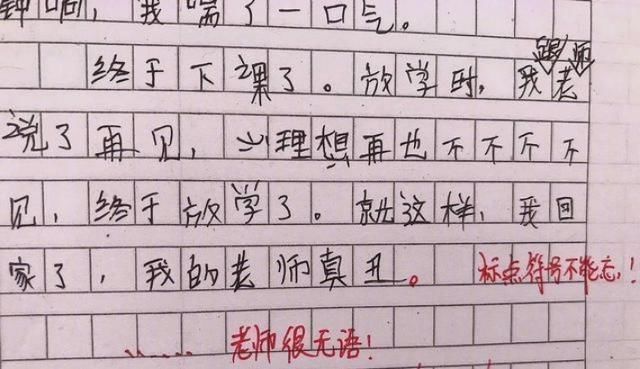 钟响，我喘了一口气。
终于下课了。放学时，我跟老师
说了再见，心理想再也不不不不
见，终于放学了。就这样，我回
家了，我的老师真丑。 标点符号不能忘！
......老师很无语！